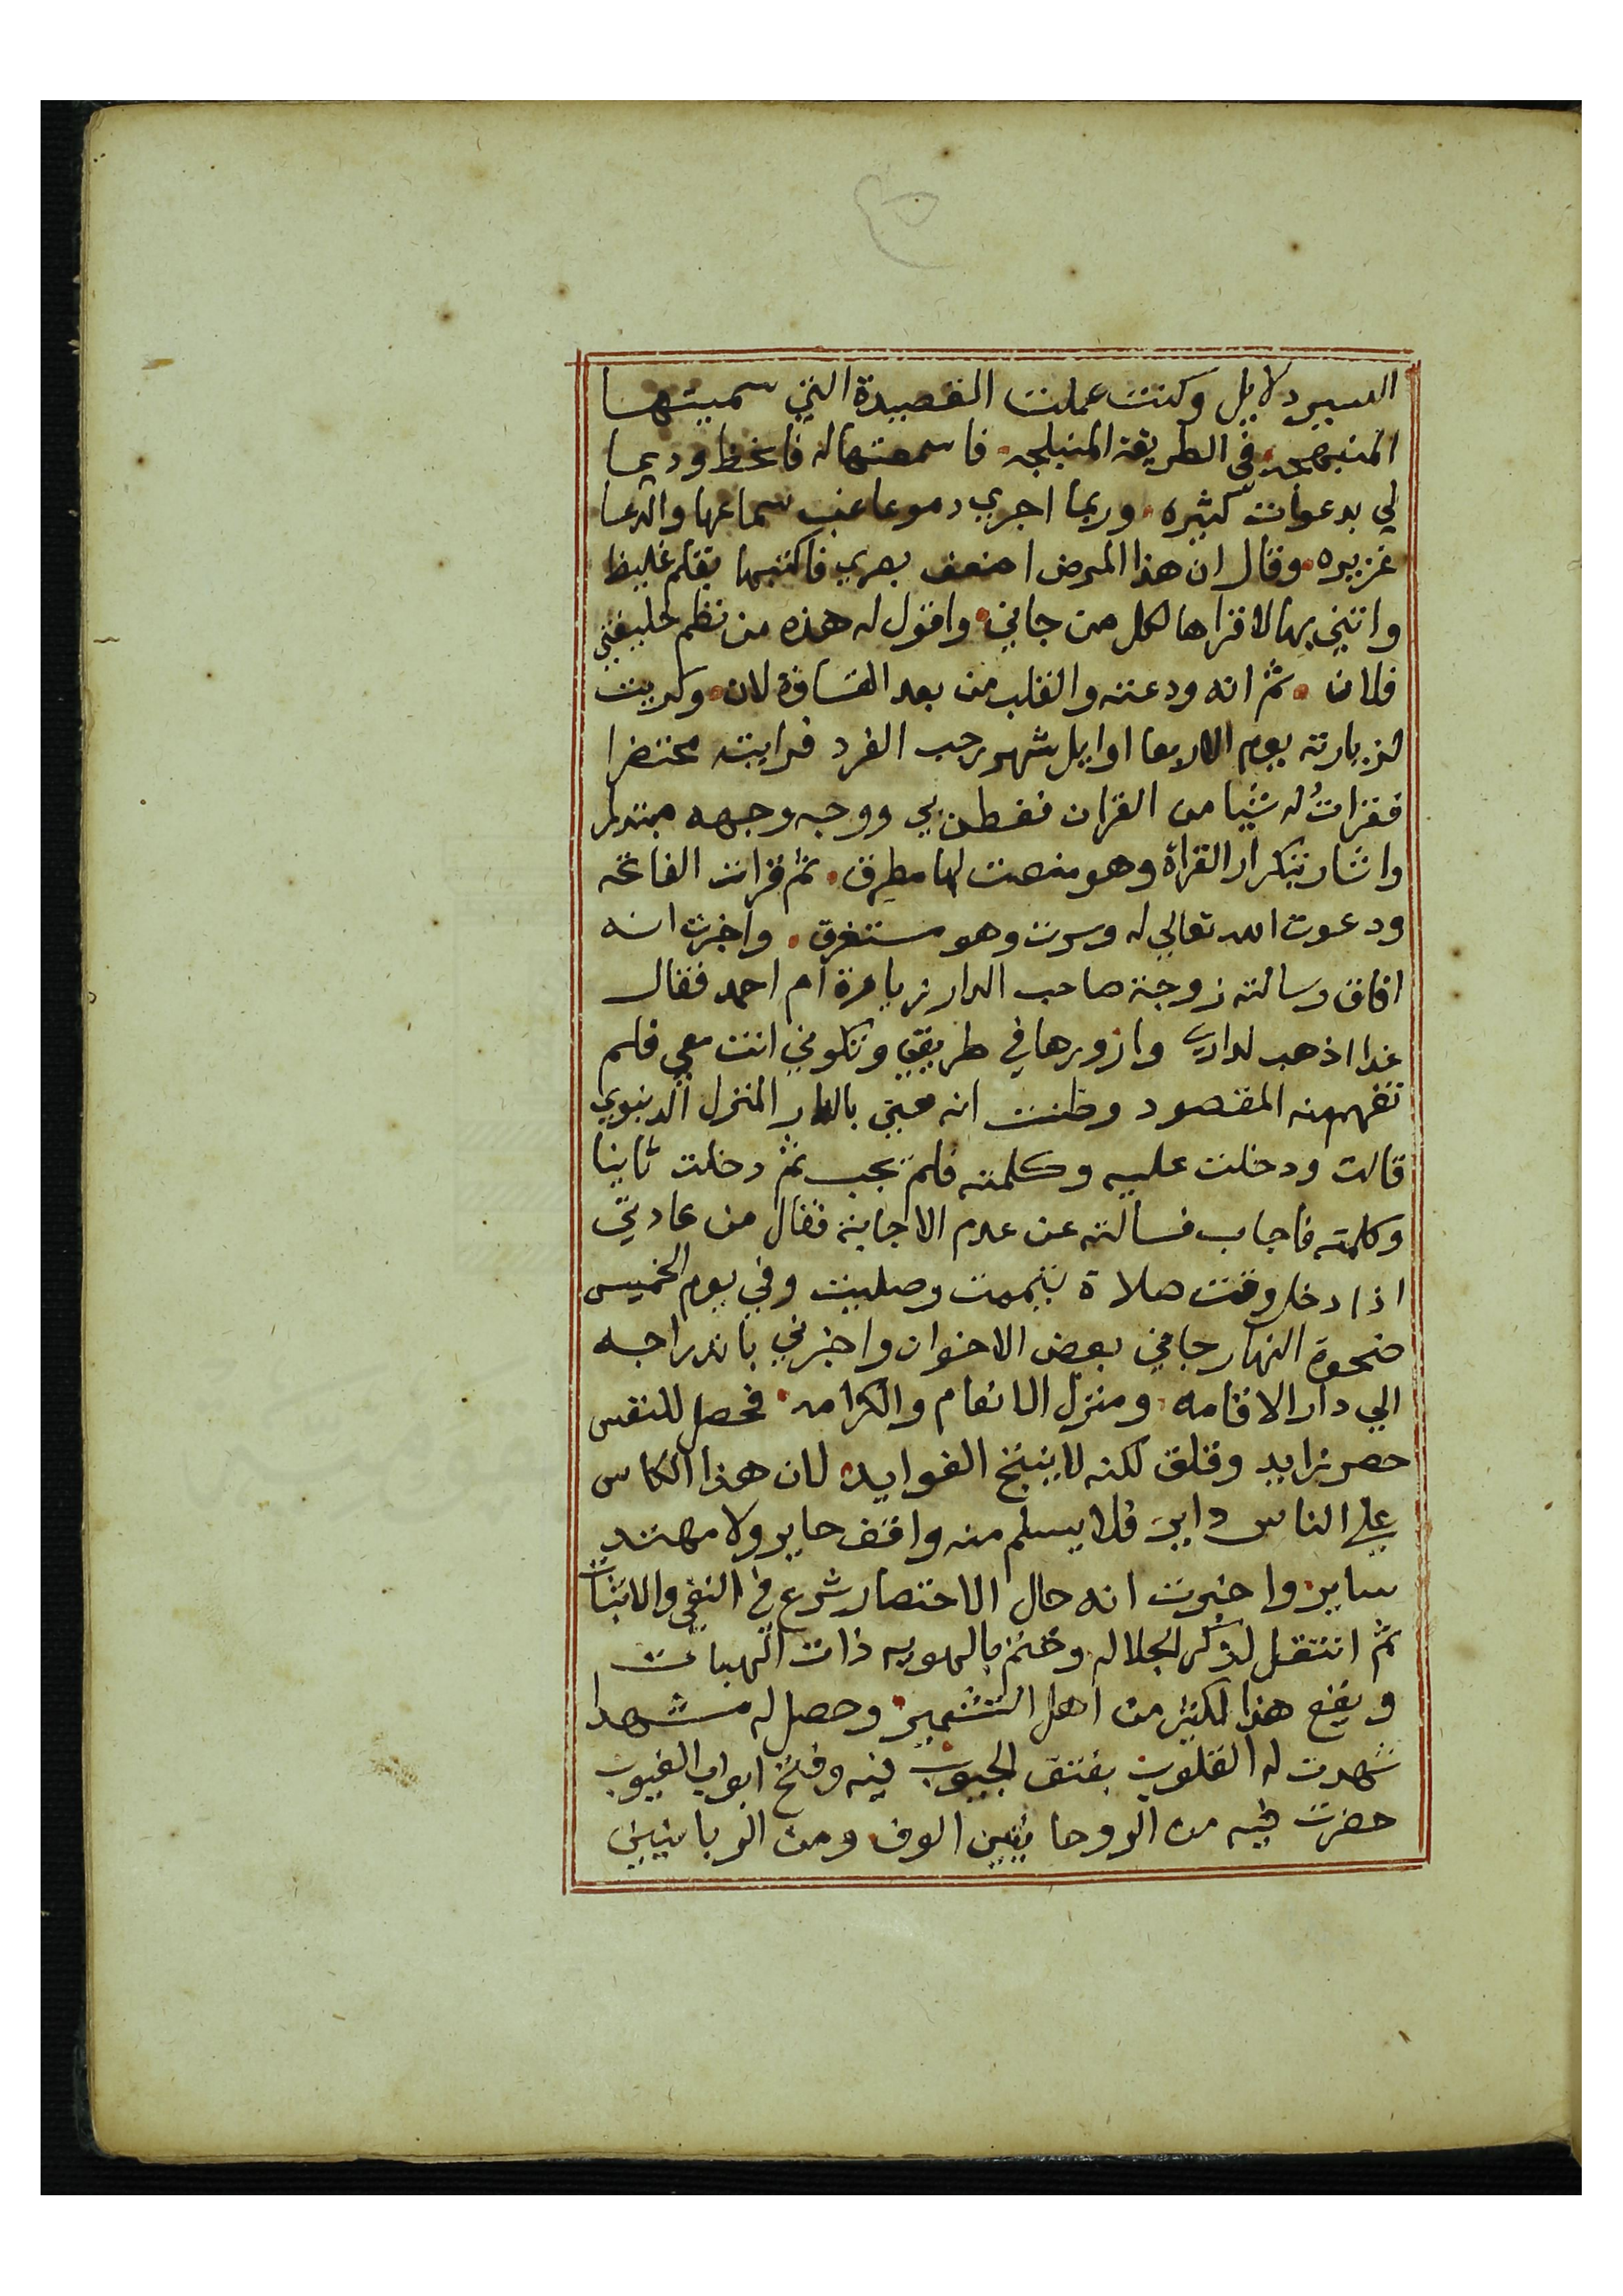 السير دلايل وكنت عملت القصيدة التي سميتها
المنبهجه في الطريقة المنبلجه فاسمعتها له فانحظ ودعا
لي بدعوات كثيره وربما اجري دموعا عند سماعها والدعا
غزيره وقال ان هذا المرض اضعف بصري فاكتبها بقلم غليظ
واتني بها لاقراها لكل من جاني واقول له هذه من نظم خليفتي
فلان ثم انه ودعته والقلب من بعد القساوة لان وكريت
لزيارته يوم الاربعا اوايل شهر رجب الفرد فرايته محتضرا
فقرات له شيا من القران ففطن بي ووجه وجهه مبتدلر
واشار بتكرار القراة وهو منصت لها مطرق ثم قرات الفاتحه
ودعوت الله تعالي له وسرت وهو مستغرق واخبرت انه
افاق وسالته زوجة صاحب الدار زيارة ام احمد فقال
غدا اذهب لداري وازورها في طريقي وتكوني انت معي فلم
تفهم منه المقصود وظنت انه عني بالدار المنزل الدنيوي
قالت ودخلت عليه وكلمته فلم يجب ثم دخلت ثانيا
وكلمته فاجاب فسالته عن عدم الاجابة فقال من عادتي
اذا دخل وقت صلاة تيممت وصليت وفي يوم الخميس
ضحوة النهار جاني بعض الاخوان واخبرني بانه راجه
الي دار الاقامه ومنزل الانعام والكرامه فحصل للنفس
حصر زايد وقلق لكنه لا ينتج الفوايد لان هذا الكاس
علي الناس داير فلا يسلم منه واقف حاير ولا مهتد
ساير واخبرت انه حال الاحتضار شرع في النفي والاثبات
ثم انتقل لذكر الجلاله وختم بالهويه ذات الهبات
ويقع هذا لكثير من اهل التشمير وحصل له مشهد
شهدت له القلوب بفتق الجيوب فيه وفتح ابواب الغيوب
حضرت فيه من الروحانيين الوف ومن الربانيين